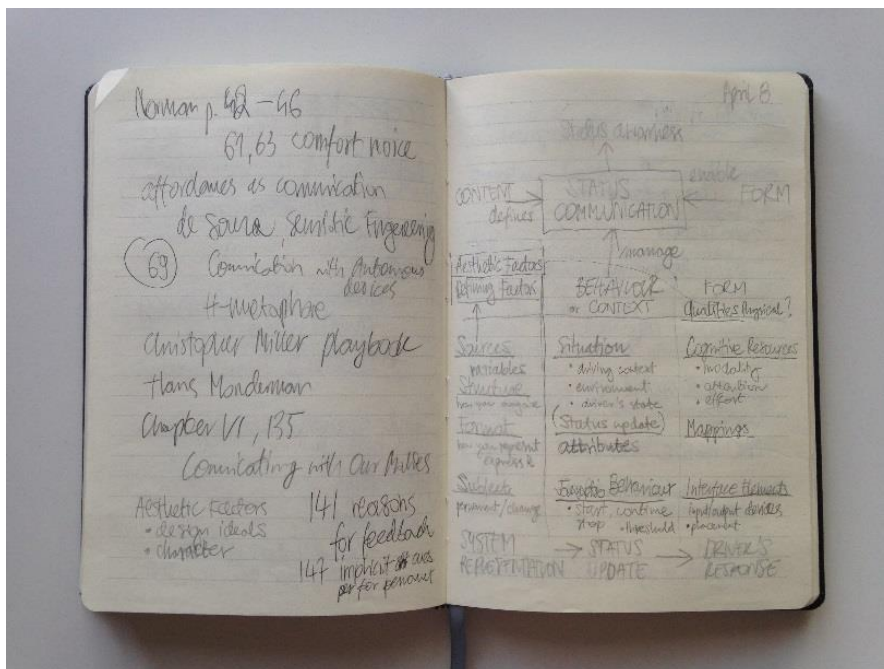 Norman p. 42 – 46
61, 63 comfort noice
affordances as comunication
de Souza, Semiotic Engeneering
69
Comunication with Autonomous
devices
H-metaphore
Christopher Miller playbook
Hans Monderman
Chapter VI, 135
Comunicating with Our
Aesthetic Factors
• design ideals
• character
141 reasons
for feedback
147 implicit cues
April 8
Status awareness
CONTENT
defines
STATUS
COMMUNICATION
enable
FORM
manage
Aesthetic Factors
Defining Factors
BEHAVIOUR
or CONTEXT
FORM
Qualities Physical?
Sources
variables
Structure
how you organize
Format
how you represent
express it
Subject
permanent/change
Situation
• driving context
• environment
• driver's state
(Status update)
attributes
Behaviour
• start, continue
stop • threshold
Cognitive Resources
• modality
• attention
• effort
Mappings
Interface Elements
input/output devices
• placement
SYSTEM
REPRESENTATION
→ STATUS
UPDATE
→ DRIVER'S
RESPONSE